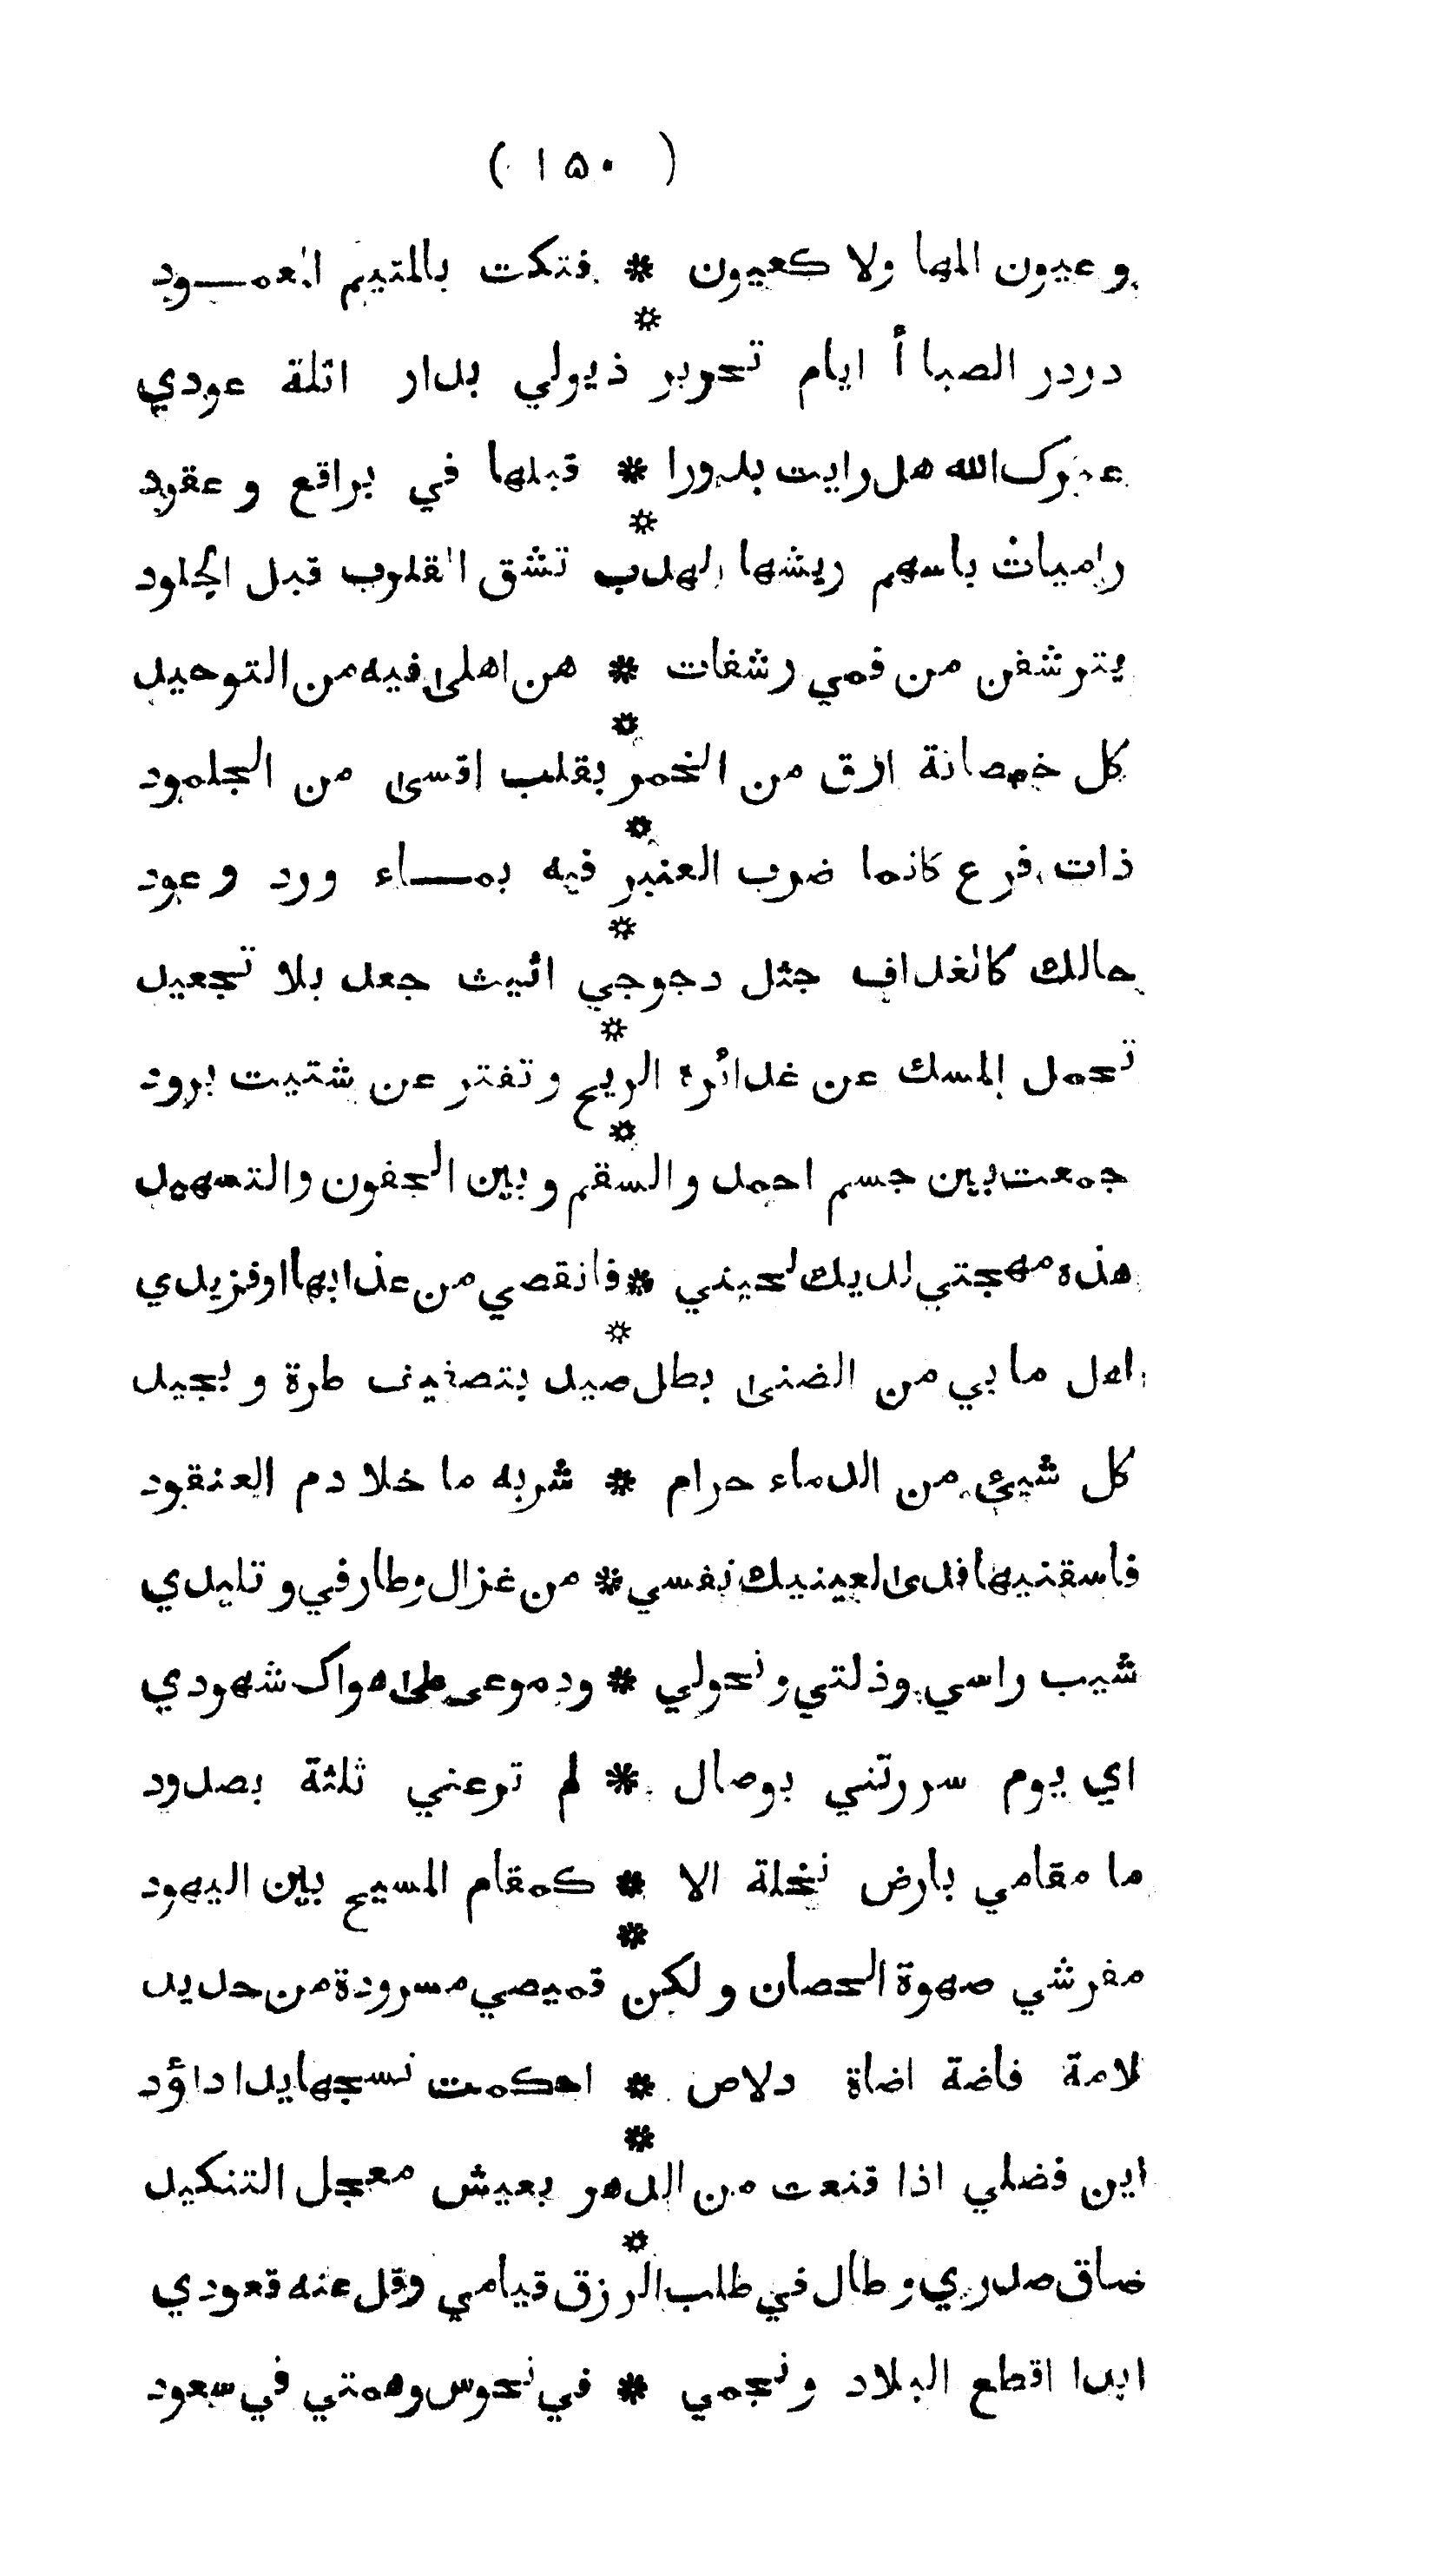 ( ١٥٠ )
وعيون المها ولا كعيون * فتكت بالمتيم المعمـــود
*
دردر الصبا أ ايام تجرير ذيولي بدار اثلة عودي
عمرك الله هل رايت بدورا * قبلها في براقع و عقود
*
راميات باسهم ريشها الهدب تشق القلوب قبل الجلود
يترشفن من فمي رشفات * هن احلى فيه من التوحيد
*
كل خمصانة ارق من الخمر بقلب اقسى من الجلمود
*
ذات فرع كانما ضرب العنبر فيه بمـــاء ورد وعود
*
حالك كالغداف جثل دجوجي اثيث جعد بلا تجعيد
*
تحمل المسك عن غدائره الريح وتفتر عن شتيت برود
*
جمعت بين جسم احمد والسقم وبين الجفون والتسهيد
هذه مهجتي لديك لحيني * فانقصي من عذابها اوفزيدي
*
اهل ما بي من الضنى بطل صيد بتصفيف طرة و بجيد
كل شيئ من الدماء حرام * شربه ما خلا دم العنقود
فاسقنيها فدى لعينيك نفسي * من غزال وطارفي وتليدي
شيب راسي وذلتي ونحولي * ودموعى على هواك شهودي
اي يوم سررتني بوصال * لم ترعني ثلثة بصدود
ما مقامي بارض نخلة الا * كمقام المسيح بين اليهود
*
مفرشي صهوة الحصان ولكن قميصي مسرودة من حديد
لامة فاضة اضاة دلاص * احكمت نسجها يدا داؤد
*
اين فضلي اذا قنعت من الدهر بعيش معجل التنكيد
*
ضاق صدري وطال في طلب الرزق قيامي وقل عنه قعودي
ابدا اقطع البلاد ونجمي * في نحوس وهمتي في سعود